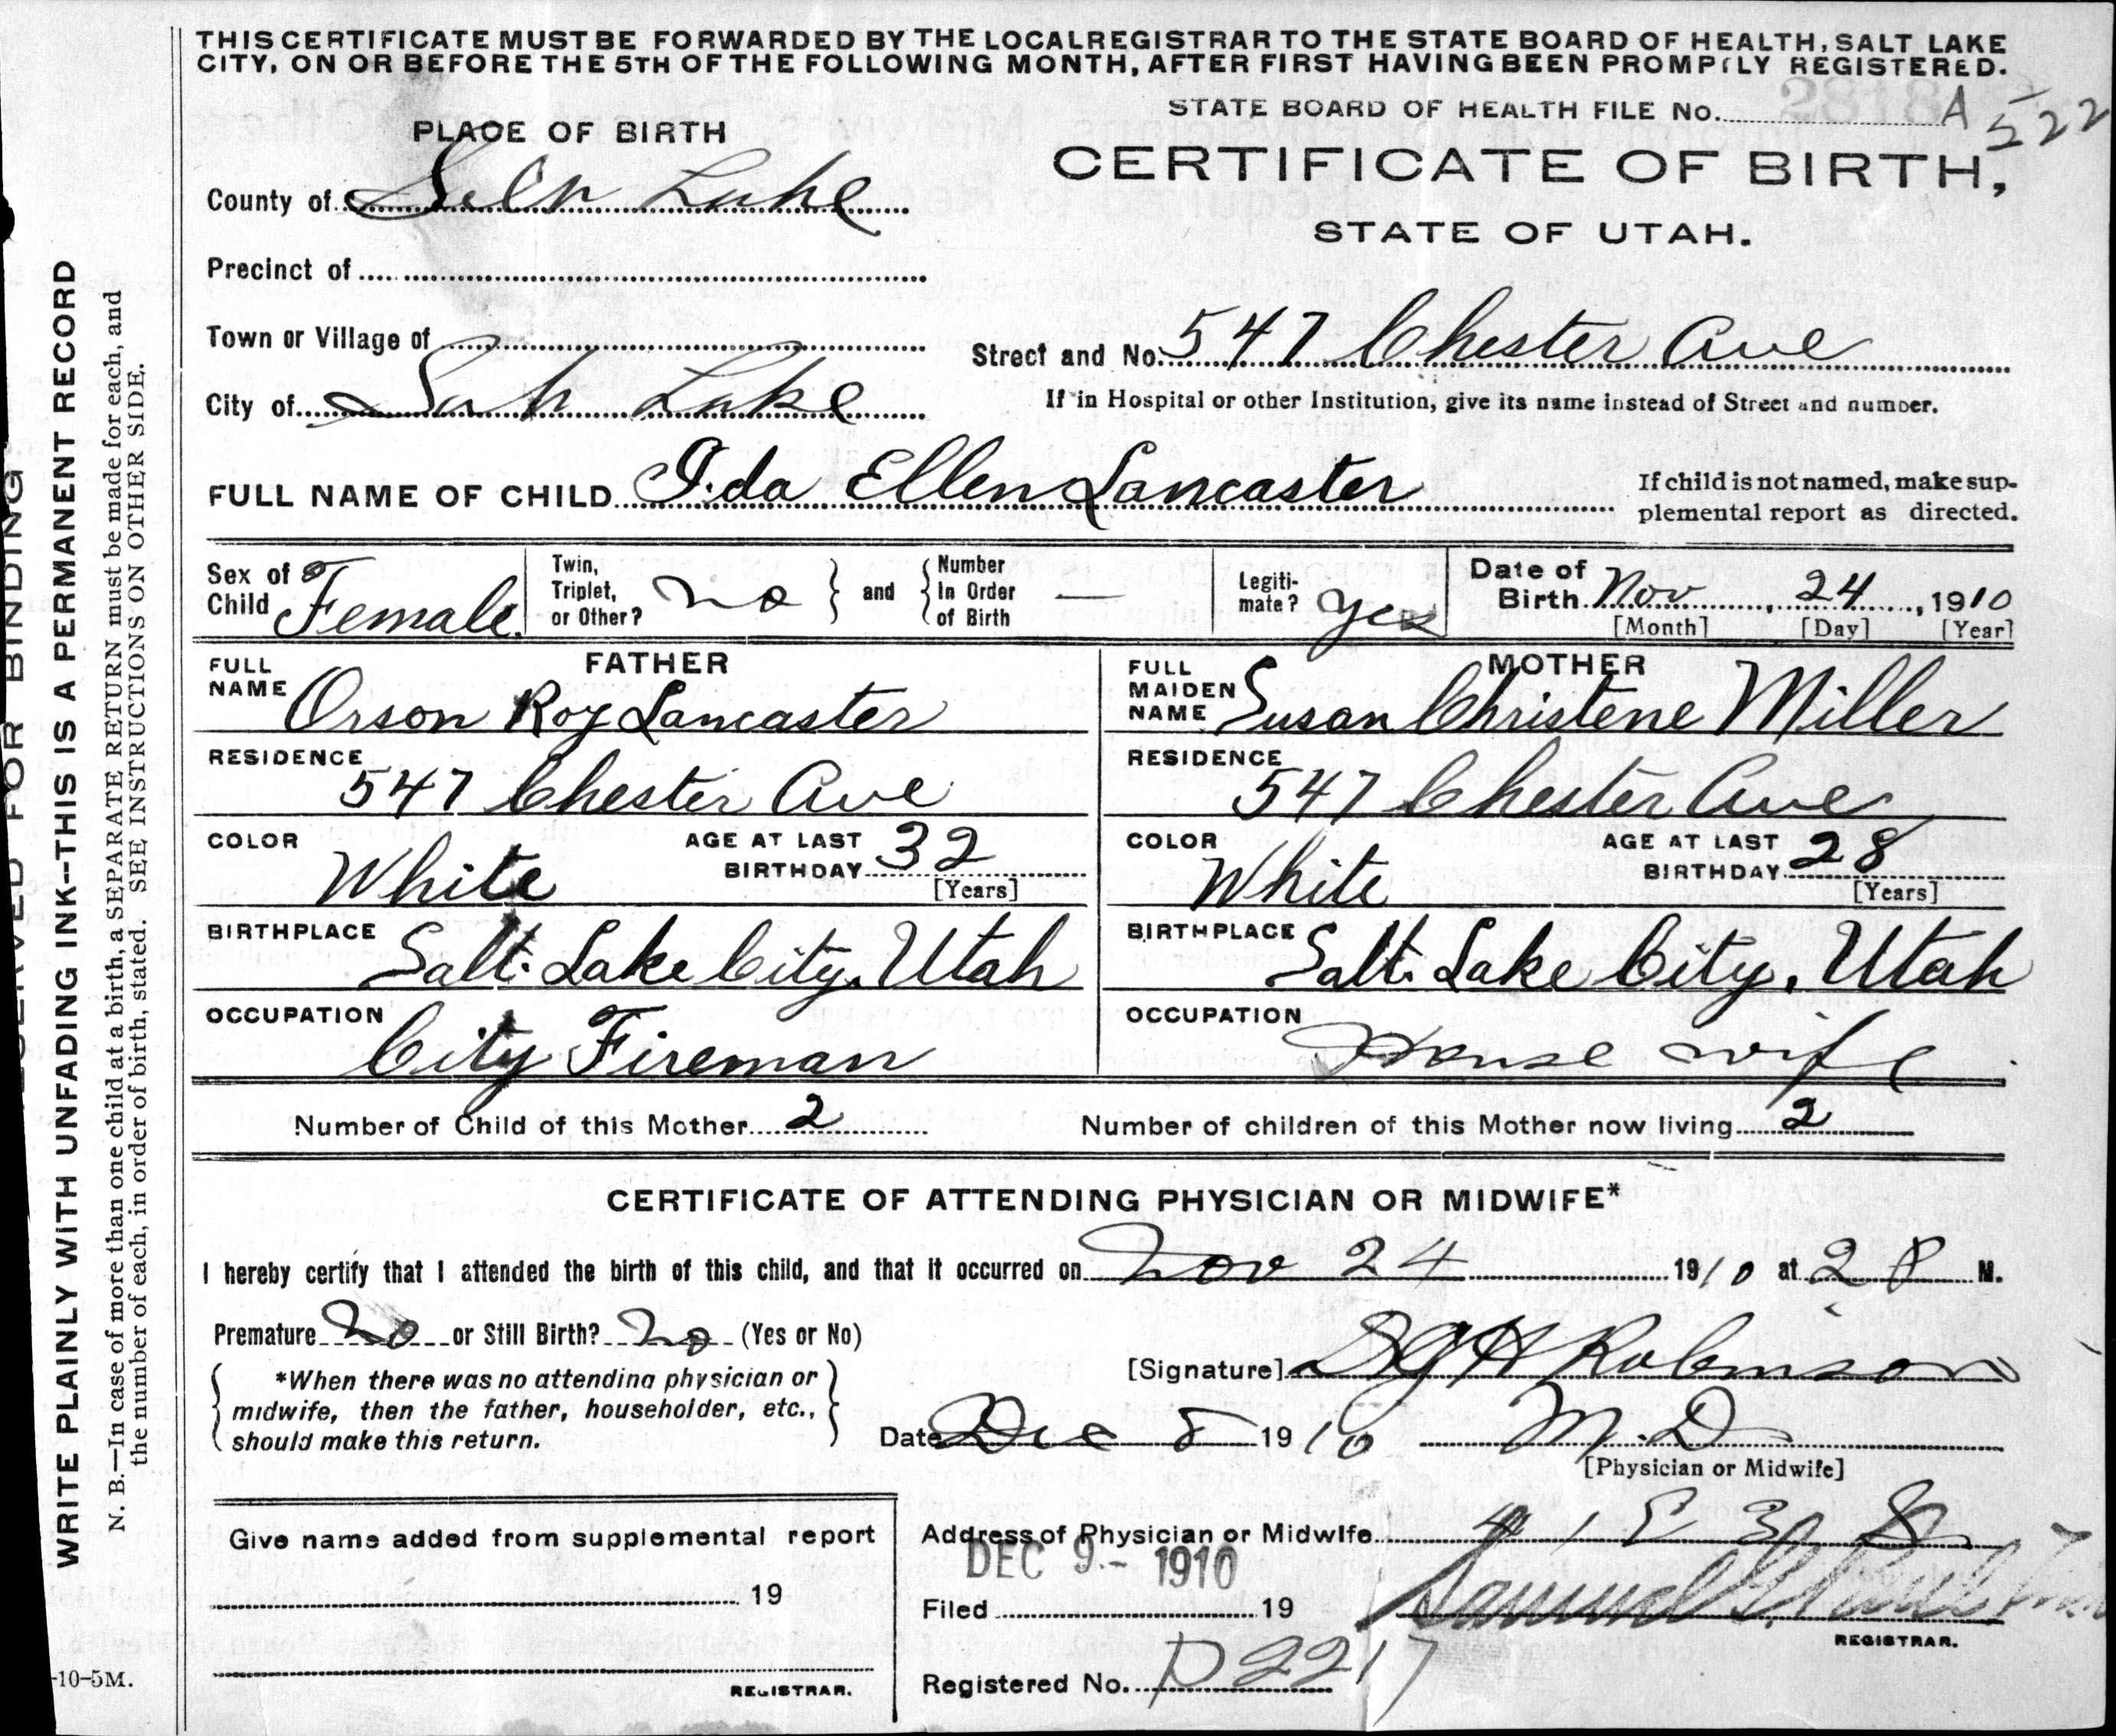 THIS CERTIFICATE MUST BE FORWARDED BY THE LOCAL REGISTRAR TO THE STATE BOARD OF HEALTH, SALT LAKE
CITY, ON OR BEFORE THE 5TH OF THE FOLLOWING MONTH, AFTER FIRST HAVING BEEN PROMPTLY REGISTERED.
STATE BOARD OF HEALTH FILE No. A 522
PLACE OF BIRTH
CERTIFICATE OF BIRTH,
STATE OF UTAH.
County of Salt Lake
Precinct of
Town or Village of
Street and No. 547 Chester Ave
City of Salt Lake
If in Hospital or other Institution, give its name instead of Street and number.
FULL NAME OF CHILD Ida Ellen Lancaster
If child is not named, make sup-
plemental report as directed.
Sex of Child Female
Twin, Triplet, or Other? no
and
Number In Order of Birth —
Legiti-mate? yes
Date of Birth Nov 24, 1910
[Month] [Day] [Year]
FATHER
FULL NAME Orson Roy Lancaster
RESIDENCE 547 Chester Ave
COLOR White
AGE AT LAST BIRTHDAY 32
[Years]
BIRTHPLACE Salt Lake City, Utah
OCCUPATION City Fireman
MOTHER
FULL MAIDEN NAME Susan Christene Miller
RESIDENCE 547 Chester Ave
COLOR White
AGE AT LAST BIRTHDAY 28
[Years]
BIRTHPLACE Salt Lake City, Utah
OCCUPATION House wife
Number of Child of this Mother 2
Number of children of this Mother now living 2
CERTIFICATE OF ATTENDING PHYSICIAN OR MIDWIFE*
I hereby certify that I attended the birth of this child, and that it occurred on Nov 24 1910 at 2 P M.
Premature No or Still Birth? No (Yes or No)
[Signature] Robinson
*When there was no attending physician or
midwife, then the father, householder, etc.,
should make this return.
Date Dec 8 1910 M.D
[Physician or Midwife]
Give name added from supplemental report
19
REGISTRAR.
Address of Physician or Midwife
DEC 9 - 1910
Filed 19
Samuel G.
REGISTRAR.
Registered No. D2217
RESERVED FOR BINDING
WRITE PLAINLY WITH UNFADING INK--THIS IS A PERMANENT RECORD
N. B.—In case of more than one child at a birth, a SEPARATE RETURN must be made for each, and
the number of each, in order of birth, stated. SEE INSTRUCTIONS ON OTHER SIDE.
-10-5M.